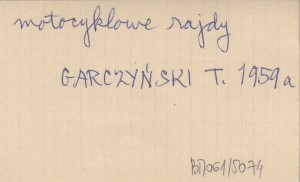 motocyklowe rajdy
GARCZYŃSKI T. 1959a
BJ/061/5074